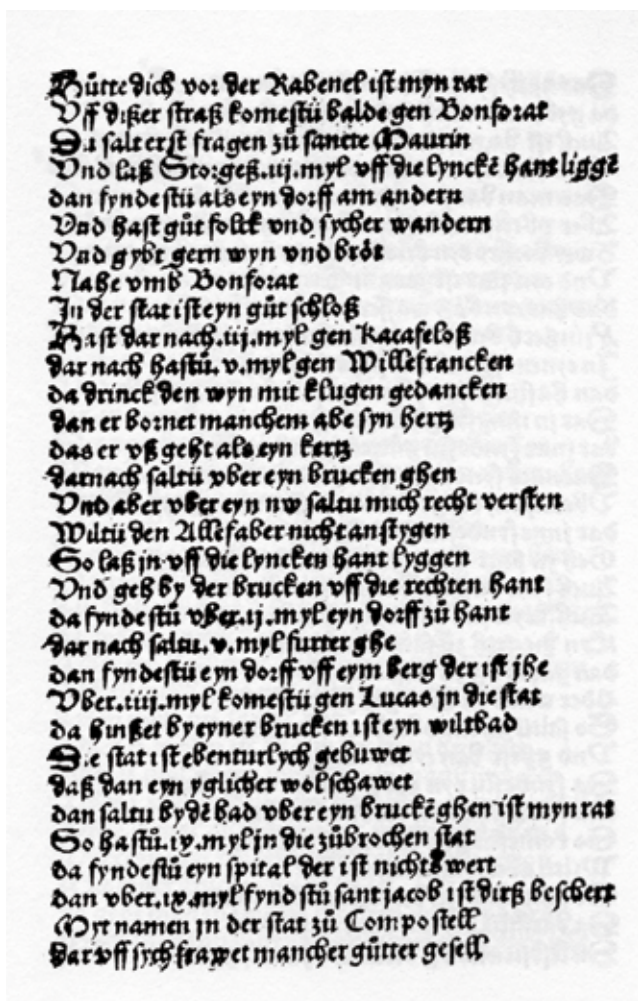 Hütte dich vor der Rabenel ist myn rat
Vff dißer straß komestü balde gen Bonforat
Du salt erst fragen zü sancte Maurin
Vnd laß Storgeß .iij. myl vff die lynckē hant liggē
dan fyndestü als eyn dorff am andern
Vnd hast güt folck vnd sycher wandern
Vnd gybt gern wyn vnd bröt
Nahe vmb Bonforat
In der stat ist eyn güt schloß
Hast dar nach .iij. myl gen kacafeloß
dar nach hastü .v. myl gen Willefrancken
da drinck den wyn mit klugen gedancken
dan er bornet manchem abe syn hertz
das er vß geht als eyn kertz
darnach saltü vber eyn brucken ghen
Vnd aber vber eyn nw saltu mich recht versten
Wiltü den Allefaber nicht an stygen
So laß jn vff die lyncken hant lyggen
Vnd geh by der brucken vff die rechten hant
da fyndestü vber .ij. myl eyn dorff zü hant
dar nach saltu .v. myl furter ghe
dan fyndestü eyn dorff vff eym berg der ist jhe
Vber .iiij. myl komestü gen Lucas jn die stat
da hinßet by eyner brucken ist eyn wiltbad
Die stat ist ebenturlych gebuwet
daß dan eyn yglicher wol schawet
dan saltu by dē bad vber eyn bruckē ghen ist myn rat
So hastü .ix. myl jn die zübrochen stat
da fyndestü eyn spital der ist nichts wert
dan vber .ix. myl fynd stü sant jacob ist dirß beschert
Myt namen jn der stat zü Compostell
dar vff sych frawet mancher gütter gesell